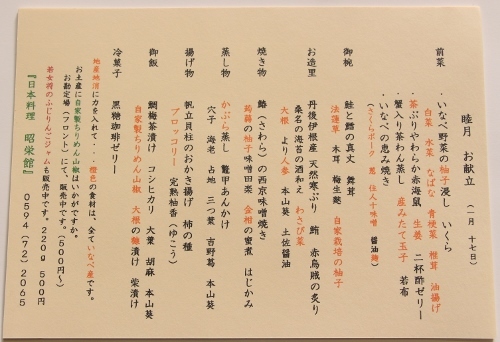 睦月　お献立　（一月　十七日）
前菜　・いなべ野菜の柚子浸し　いくら
白菜　水菜　なばな　青梗菜　椎茸　油揚げ
・茶ぶりやわらか赤海鼠　生姜　二杯酢ゼリー
・蟹入り茶わん蒸し　産みたて玉子　若布
・いなべの恵み焼き
（さくらポーク　葱　住人十味噌　醤油麹）
御椀　鮭と鱈の真丈　舞茸
法蓮草　木耳　梅生麩　自家栽培の柚子
お造里　丹後伊根産　天然寒ぶり　鮪　赤鳥賊の炙り
桑名の海苔の酒和え　わさび菜
大根　より人参　本山葵　土佐醤油
焼き物　鰆（さわら）の西京味噌焼き
蒟蒻の柚子味噌田楽　金柑の蜜煮　はじかみ
蒸し物　かぶら蒸し　鼈甲あんかけ
穴子　海老　占地　三つ葉　吉野葛　本山葵
揚げ物　帆立貝柱のおかき揚げ　柿の種
ブロッコリー　完熟柚香（ゆこう）
御飯　鯛梅茶漬け　コシヒカリ　大葉　胡麻　本山葵
自家製ちりめん山椒　大根の麹漬け　柴漬け
冷菓子　黒糖珈琲ゼリー
地産地消に力を入れて・・・橙色の食材は、全ていなべ産です。
お土産に自家製ちりめん山椒はいかがですか。
お勘定場（フロント）にて、販売中です。（５００円～）
若女将のふじりんごジャムも販売中です。２２０ｇ　５００円
『日本料理　昭栄館』　０５９４（７２）２０６５